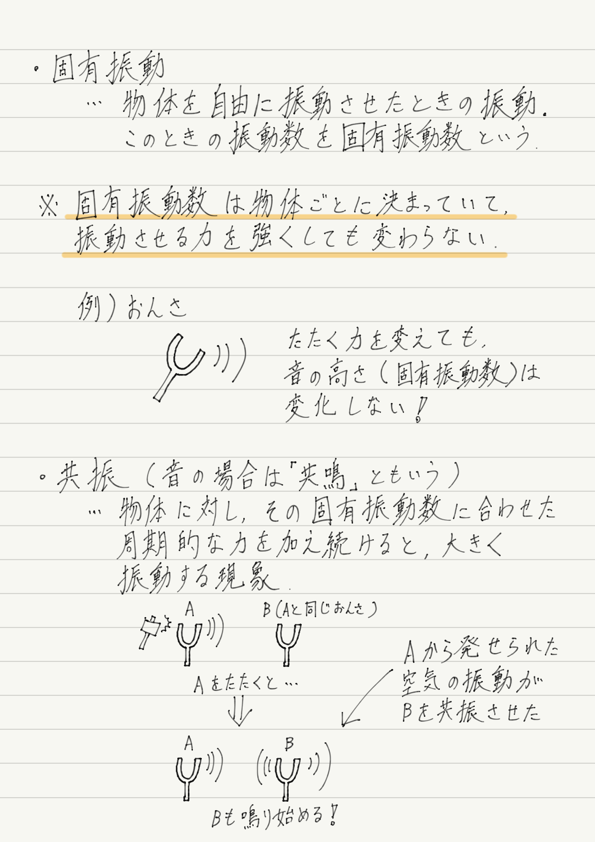 ・固有振動
… 物体を自由に振動させたときの振動.
このときの振動数を固有振動数という.
※ 固有振動数は物体ごとに決まっていて,
振動させる力を強くしても変わらない.
例) おんさ
たたく力を変えても,
音の高さ(固有振動数)は
変化しない!
・共振 (音の場合は「共鳴」ともいう)
… 物体に対し, その固有振動数に合わせた
周期的な力を加え続けると, 大きく
振動する現象.
A
B (Aと同じおんさ)
Aをたたくと…
Aから発せられた
空気の振動が
Bを共振させた
A
B
Bも鳴り始める!